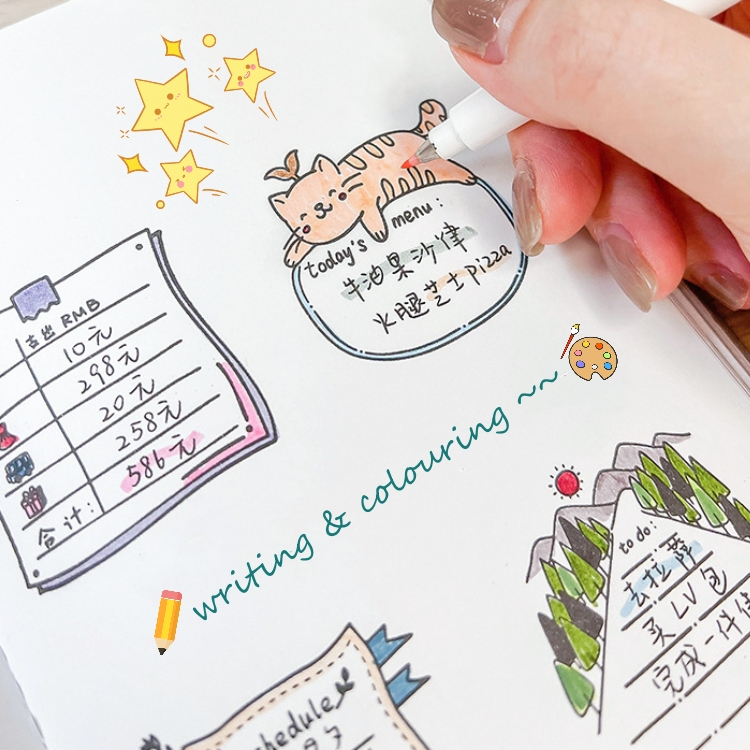 today's menu:
牛油果沙律
火腿芝士pizza
支出 RMB
10元
298元
20元
258元
586元
合计:
writing & colouring ~~
to do:
去拉萨
买LV包
完成一件
schedule